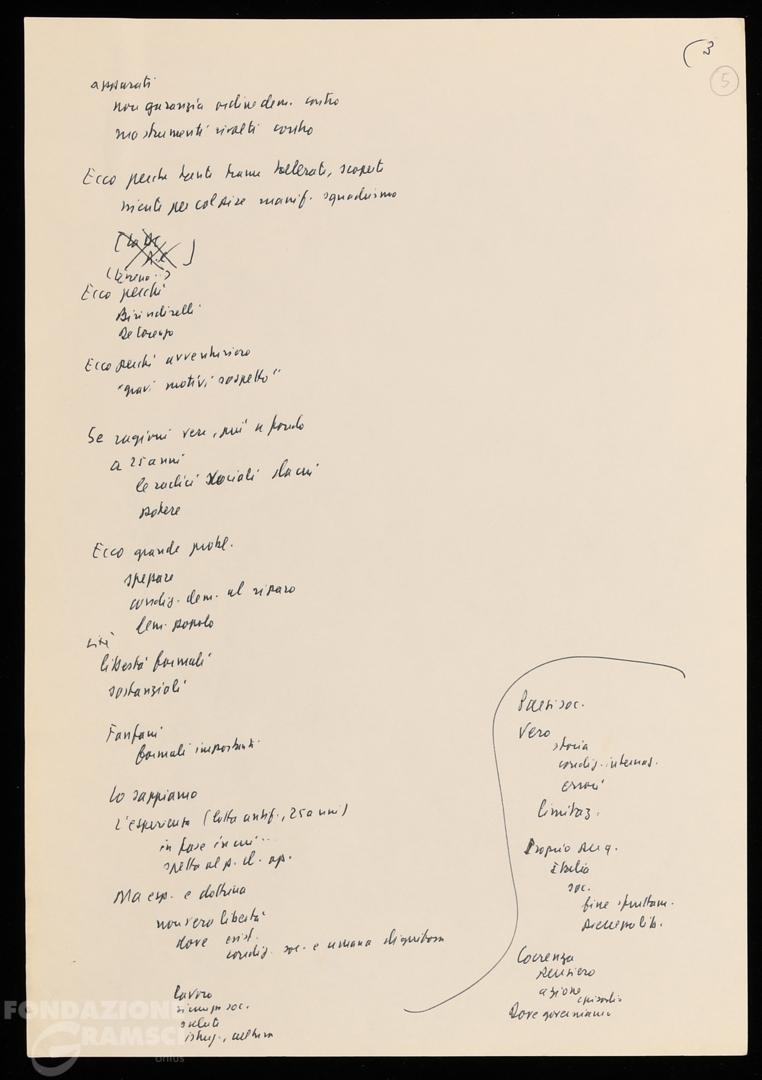 (3
5
apparati
non garanzia ordine dem. contro
ma strumenti rivolti contro
Ecco perché tante trame tollerate, scoperte
niente per colpire manif. squadrismo
[La DC
]
Ecco perché
Birindelli
De Lorenzo
Ecco perché avventurismo
"gravi motivi sospetto"
Se ragioni vere, più a fondo
a 25 anni
le radici sociali
potere
Ecco grande probl.
condiz. dem. al riparo
popolo
libertà formali
sostanziali
Fanfani
formali importanti
Lo sappiamo
L'esperienza (lotta antif., 25 anni)
in fase in cui ...
spetta al p. d. op.
Ma esp. e dottrina
non vero libertà
dove esist.
condiz. soc. e umana dignitosa
lavoro
soc.
salute
istruz., cultura
Paesi soc.
Vero
storia
condiz. internaz.
errori
limitaz.
Proprio
Italia
soc.
fine sfruttam.
Coerenza
pensiero
azione
Dove governiamo
FONDAZIONE
GRAMSCI
onlus